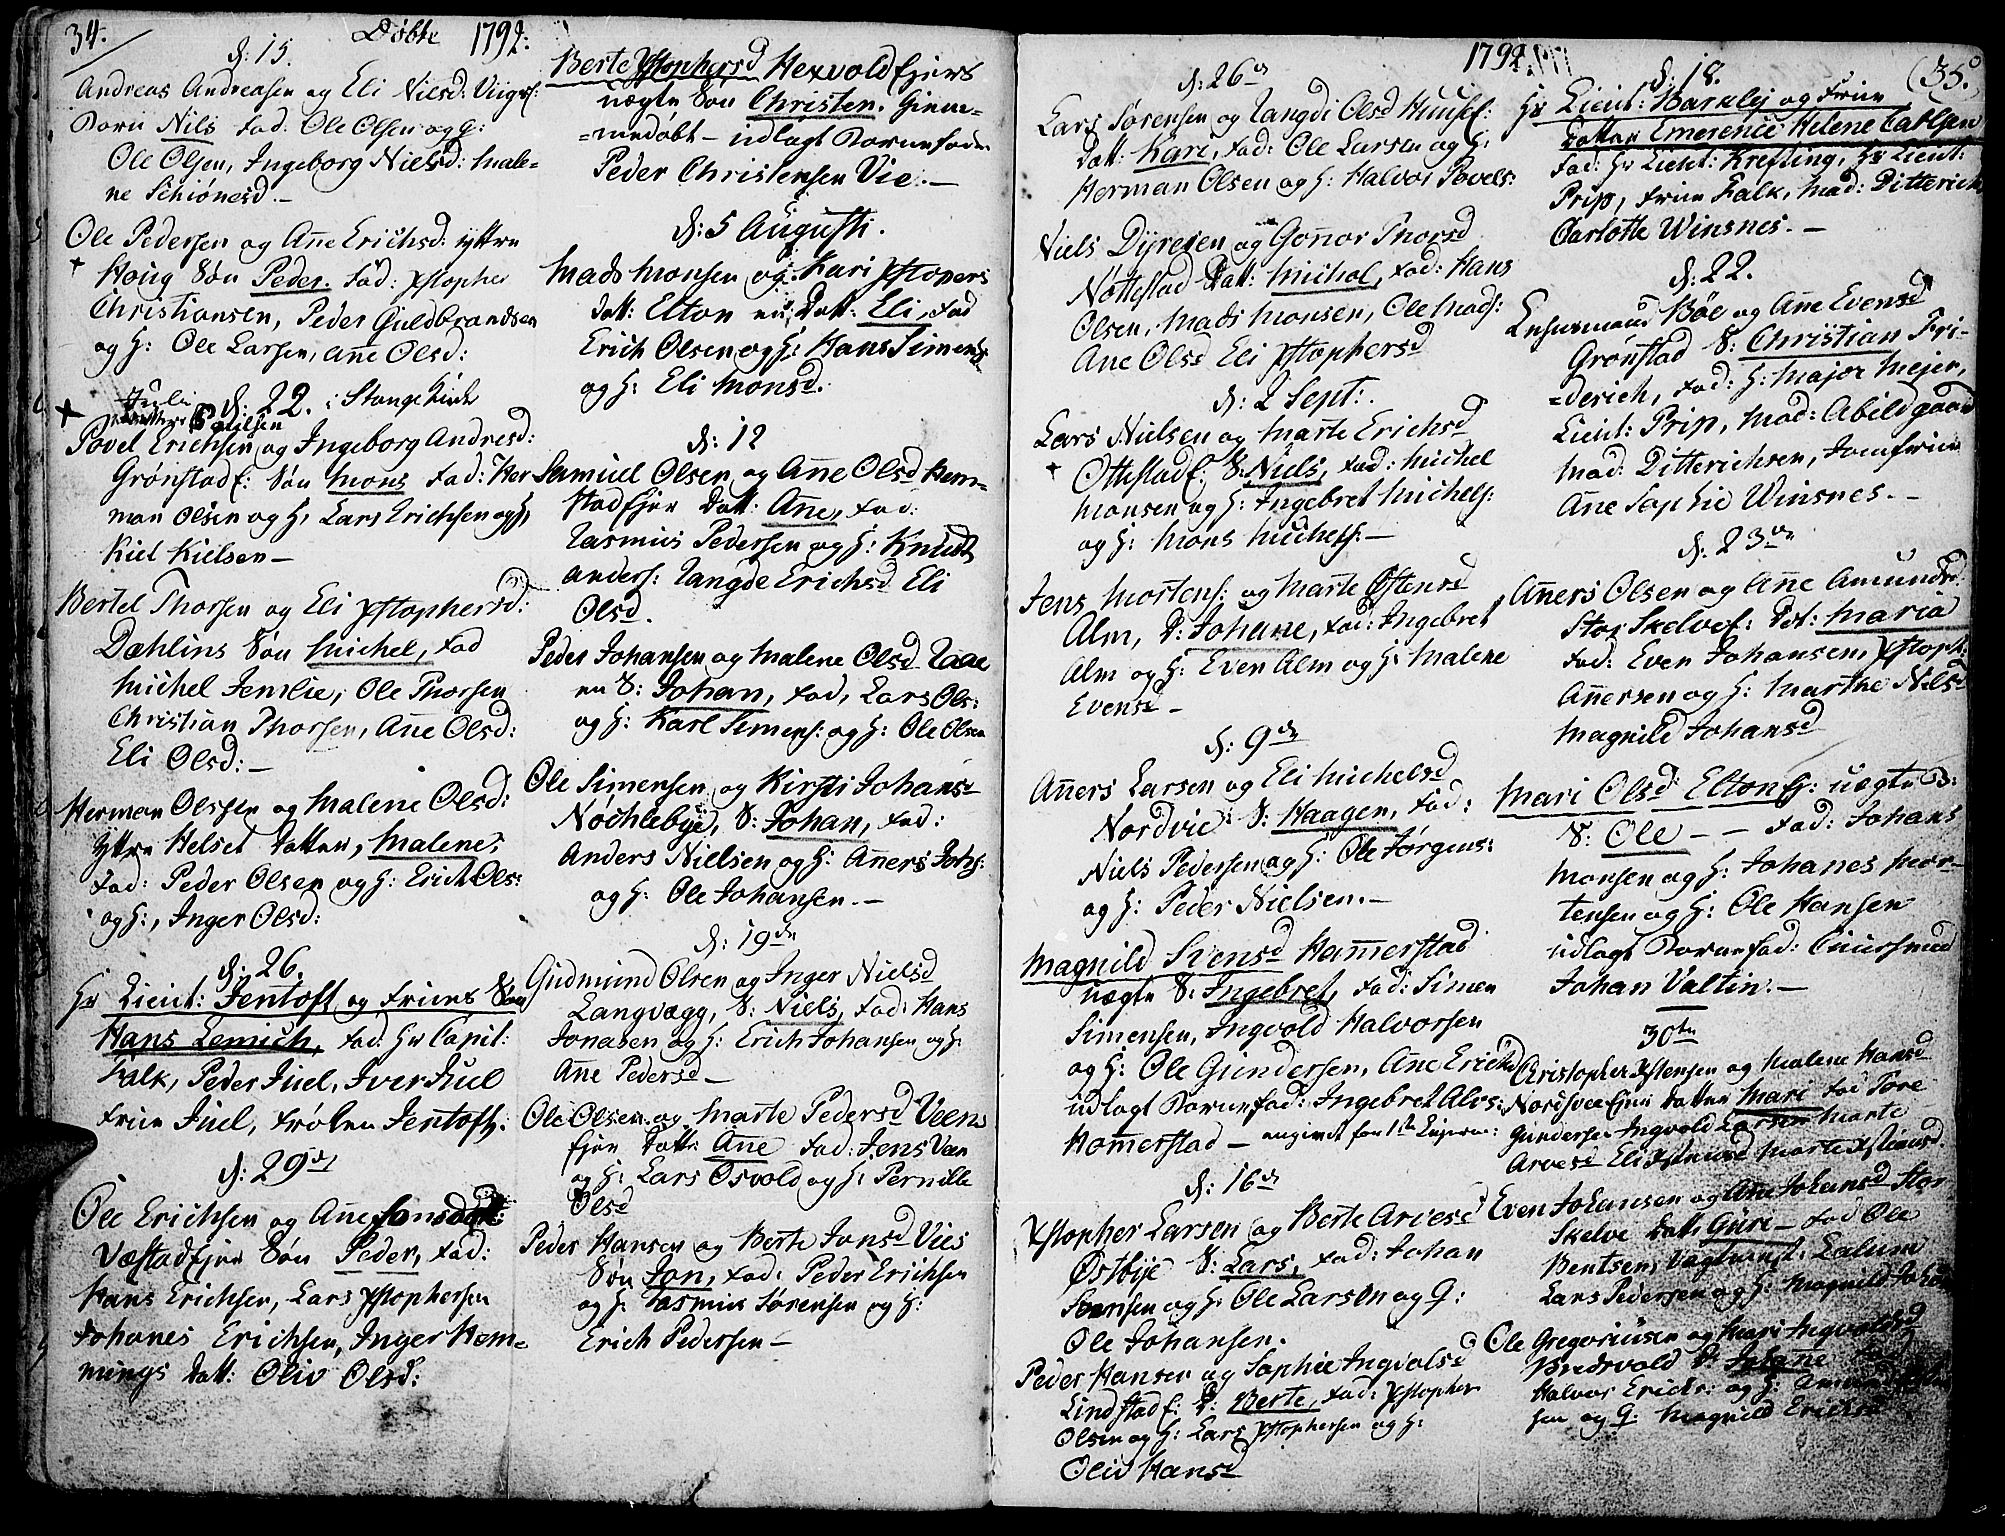 34.
Døbte 1792.
d: 15.
Andreas Andreasen og Eli Nielsd:
Barn Nils Fad: Ole Olsen og H:
Ole Olsen, Ingeborg Nielsd: Male=
ne Schiønesd.—
Ole Pedersen og Añe Erichsd: yttre
+ Houg Søn Peder. Fad: Xstopher
Christiansen, Peder Guldbrandsen
og H: Ole Larsen, Añe Olsd:
Juli d: 22. i Stange Kirke
+ Povel Erichsen og Ingeborg Andresd:
Grønstad E: Søn Mons Fad: Her
man Olsen og H, Lars Erichsen og H,
Kiel Kielsen—
Bertel Thorsen og Eli Xstophersd:
Dæhlins Søn Michel, Fad
Michel Jemlie, Ole Thorsen
Christian Thorsen, Añe Olsd:
Eli Olsd:—
Herman Olssen og Malene Olsd:
Yttre Helset Datter, Malene,
Fad: Peder Olsen og H: Erich Ols:
og H:, Inger Olsd:
d: 26.
Hr Lieut: Jentoft og Frues Søn
Hans Lemich, Fad: Hr Capit:
Falk, Peder Juel, Iver Juel
Frue Juel, Frøken Jentoft.
d: 29de
Ole Erichsen og Añe
Væstad Ejer Søn Peder, Fad:
Hans Erichsen, Lars Xstophersen
Johanes Erichsen, Inger Hem=
mings Datt: Oliv Olsd:
Berte Xstophersd Hexvold Ejers
uægte Søn Christen. Hiem=
=medøbt— udlagt Barnefader
Peder Christensen Vie.—
d: 5 Augusti.
Mads Monsen og Kari Xstophers
Datt: Elton Datt: Eli, Fad
Erich Olsen og H: Hans Simens:
og H: Eli Monsd.
d: 12
Samuel Olsen og Añe Olsd Hem=
stad Ejer Datt: Añe, Fad:
Rasmus Pedersen og H: Knud
Anders: Rangde Erichsd Eli
Olsd.
Peder Johansen og Malene Olsd
S: Johan, Fad, Lars Ols:
og H: Karl Simens: og H: Ole Olsen
Ole Simensen og Kirsti Johansd
Nøchlebye, S: Johan, Fad:
Anders Nielsen og H: Añers Johs:
og H: Ole Johansen.—
d: 19de
Gudmund Olsen og Inger Nielsd
Langvægg, S: Niels, Fad: Hans
Jonasen og H: Erich Johansen og H:
Añe Pedersd—
Ole Olsen og Marte Pedersd Veen
Ejer Datt: Añe Fad: Jens Veen
og H: Lars Osvold og H: Pernille
Olsd
Peder Hansen og Berte Jonsd Vies
Søn Jon, Fad: Peder Erichsen
og H: Rasmus Sørensen og H:
Erich Pedersen—
1792.
d: 26de
Lars Sørensen og Rangdi Olsd
Datt: Kari, Fad: Ole Larsen og H:
Herman Olsen og H: Halvor Povels:
Niels Dyresen og Goñor Thorsd
Nøttestad Datt: Michol, Fad: Hans
Olsen, Mads Monsen, Ole Mads:
Ane Olsd Eli Xstophersd
d: 2 Sept:.
Lars Nielsen og Marte Erichsd
+ Ottestad E. S: Niels, Fad: Michel
Monsen og H: Ingebret Michels:
og H: Mons Michels:—
Jens Mortens: og Marte Østensd
Alm, D: Johane, Fad: Ingebret
Alm og H: Even Alm og H: Malene
Evensd—
d: 9de
Añers Larsen og Eli Michelsd
Nordvie S: Haagen, Fad:
Niels Pedersen og H: Ole Jørgens:
og H: Peder Nielsen.—
Magnild Svensd Hamerstad
uægte S: Ingebret, Fad: Simen
Simensen, Ingvold Halvorsen
og H: Ole Gundersen, Ane Erichsd
udlagt Barnefad: Ingebret Alvs:
Homerstad— angivet for 1ste
d: 16de
Xstopher Larsen og Berte Arvesd
Østbye S: Lars, Fad: Johan
Svensen og H: Ole Larsen og H:
Ole Johansen.
Peder Hansen og Sophie Ingvolsd
Lindstad E: D: Berte, Fad: Xstopher
Olsen og H: Lars Xstophersen og H:
Oliv Hansd
(35.
d: 18.
Hr Lieut: Barkley og Frue
Datter Emerence Helene Catlsen
Fad: Hr Lieut: Krefting, Hr Lieut:
Prip, Frue Falk, Mad: Ditterich
Carlotte Winsnes.—
d: 22.
Lensmand Bøe og Añe Evensd
Grønstad S: Christian Fri=
=derich, Fad: H: Major Mejer,
Lieut: Prip, Mad: Abildgaard
Mad: Ditterichsen, Jomfrue
Añe Sophie Winsnes.—
d: 23de
Añers Olsen og Añe Amundsd
Stor Skelve E: Dot: Maria
Fad: Even Johansen, Xstoph:
Añersen og H: Marthe Nilsd
Magnild Johansd
Mari Olsd Elton E: uægte B:
S: Ole — — Fad: Johans
Monsen og H: Johanes Mor=
tensen og H: Ole Hansen
udlagt Barnefad:
Johan Valtin.—
30te
Christopher Xstensen og Malene Hansd
Nordsvee Ejer Datter Mari Fad Tore
Gundersen Ingvold Larsen Marte
Arvesd Eli Marte Xstiansd.
Even Johansen og Añe Johansd Stor
Skelve Datt: Guri— Fad Ole
Bentsen,
Lars Pedersen og H: Magnild Johansd
Ole Gregoriusen og Mari Ingvoldsd
Bredvold D: Johañe Fad
Halvor Erichs: og H: Amund
sen og H: Magnild Erichsd